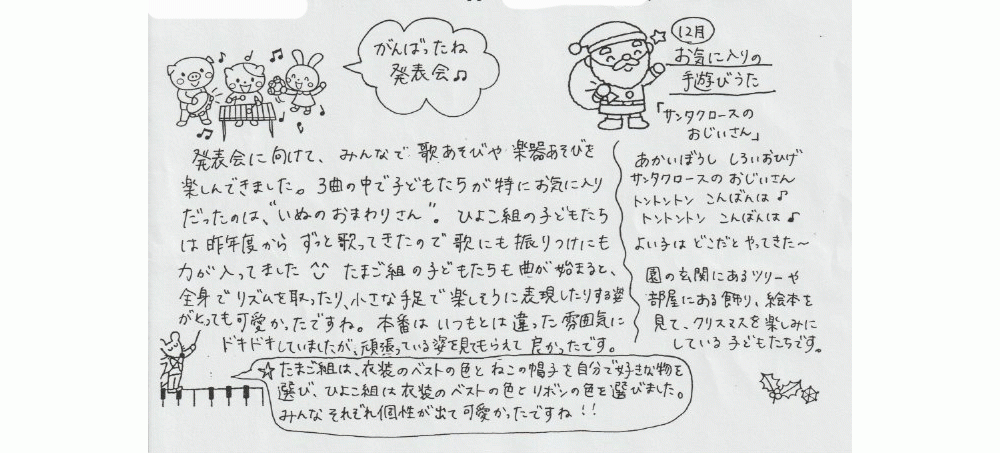 がんばったね
発表会♫
発表会に向けて、みんなで歌あそびや楽器あそびを
楽しんできました。3曲の中で子どもたちが特にお気に入り
だったのは、“いぬのおまわりさん”。ひよこ組の子どもたち
は昨年度からずっと歌ってきたので歌にも振りつけにも
力が入ってました たまご組の子どもたちも曲が始まると、
全身でリズムを取ったり、小さな手足で楽しそうに表現したりする姿
がとっても可愛かったですね。本番はいつもとは違った雰囲気に
ドキドキしていましたが、頑張っている姿を見てもらえて良かったです。
☆たまご組は、衣装のベストの色とねこの帽子を自分で好きな物を
選び、ひよこ組は衣装のベストの色とリボンの色を選びました。
みんなそれぞれ個性が出て可愛かったですね!!
12月
お気に入りの
手遊びうた
「サンタクロースの
おじいさん」
あかいぼうし しろいおひげ
サンタクロースのおじいさん
トントントン こんばんは♪
トントントン こんばんは♪
よい子はどこだとやってきた〜
園の玄関にあるツリーや
部屋にある飾り、絵本を
見て、クリスマスを楽しみに
している子どもたちです。